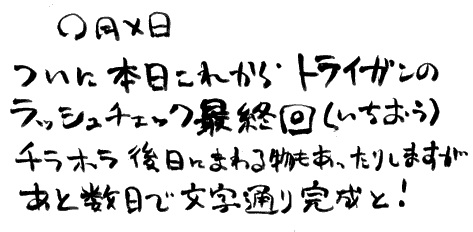 〇月×日
ついに本日これから トライガンの
ラッシュチェック最終回(いちおう)
チラホラ後日にまわる物もあったりしますが
あと数日で文字通り完成と!